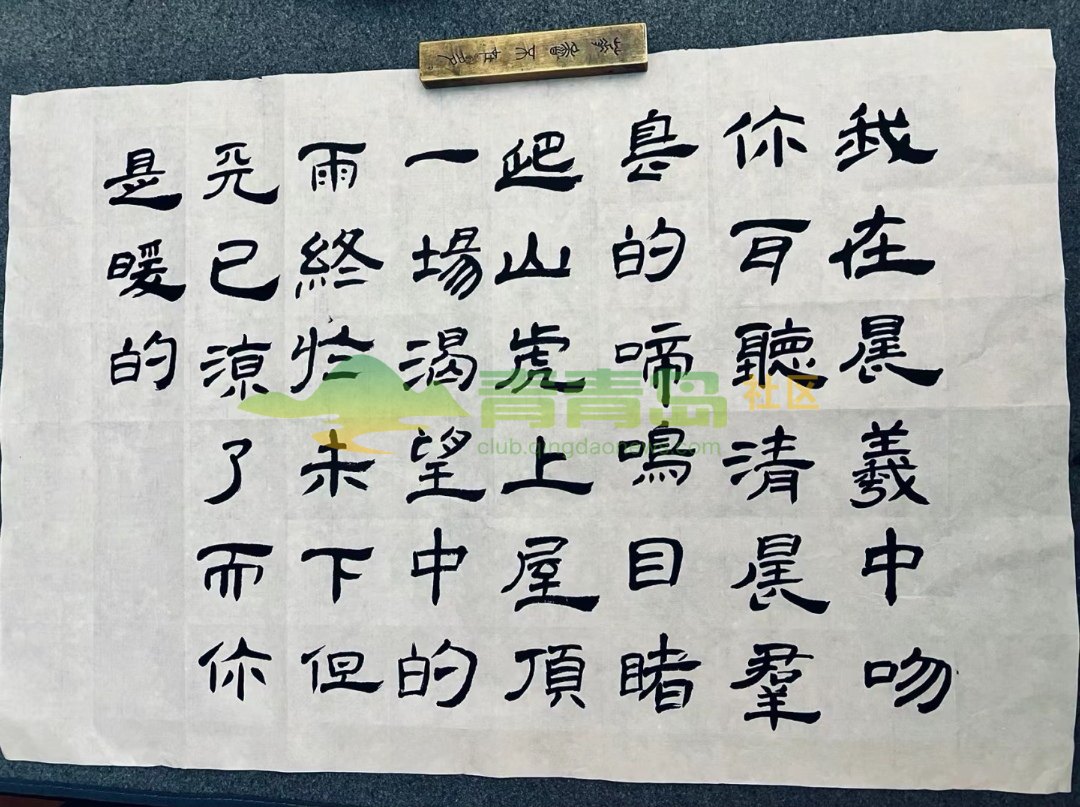 我在晨羲中吻
你耳聽清晨羣
鳥的啼鳴目睹
爬山虎上屋頂
一場渴望中的
雨終於未下但
天已涼了而你
是暖的
青青岛社区
club.qingdaonews.com